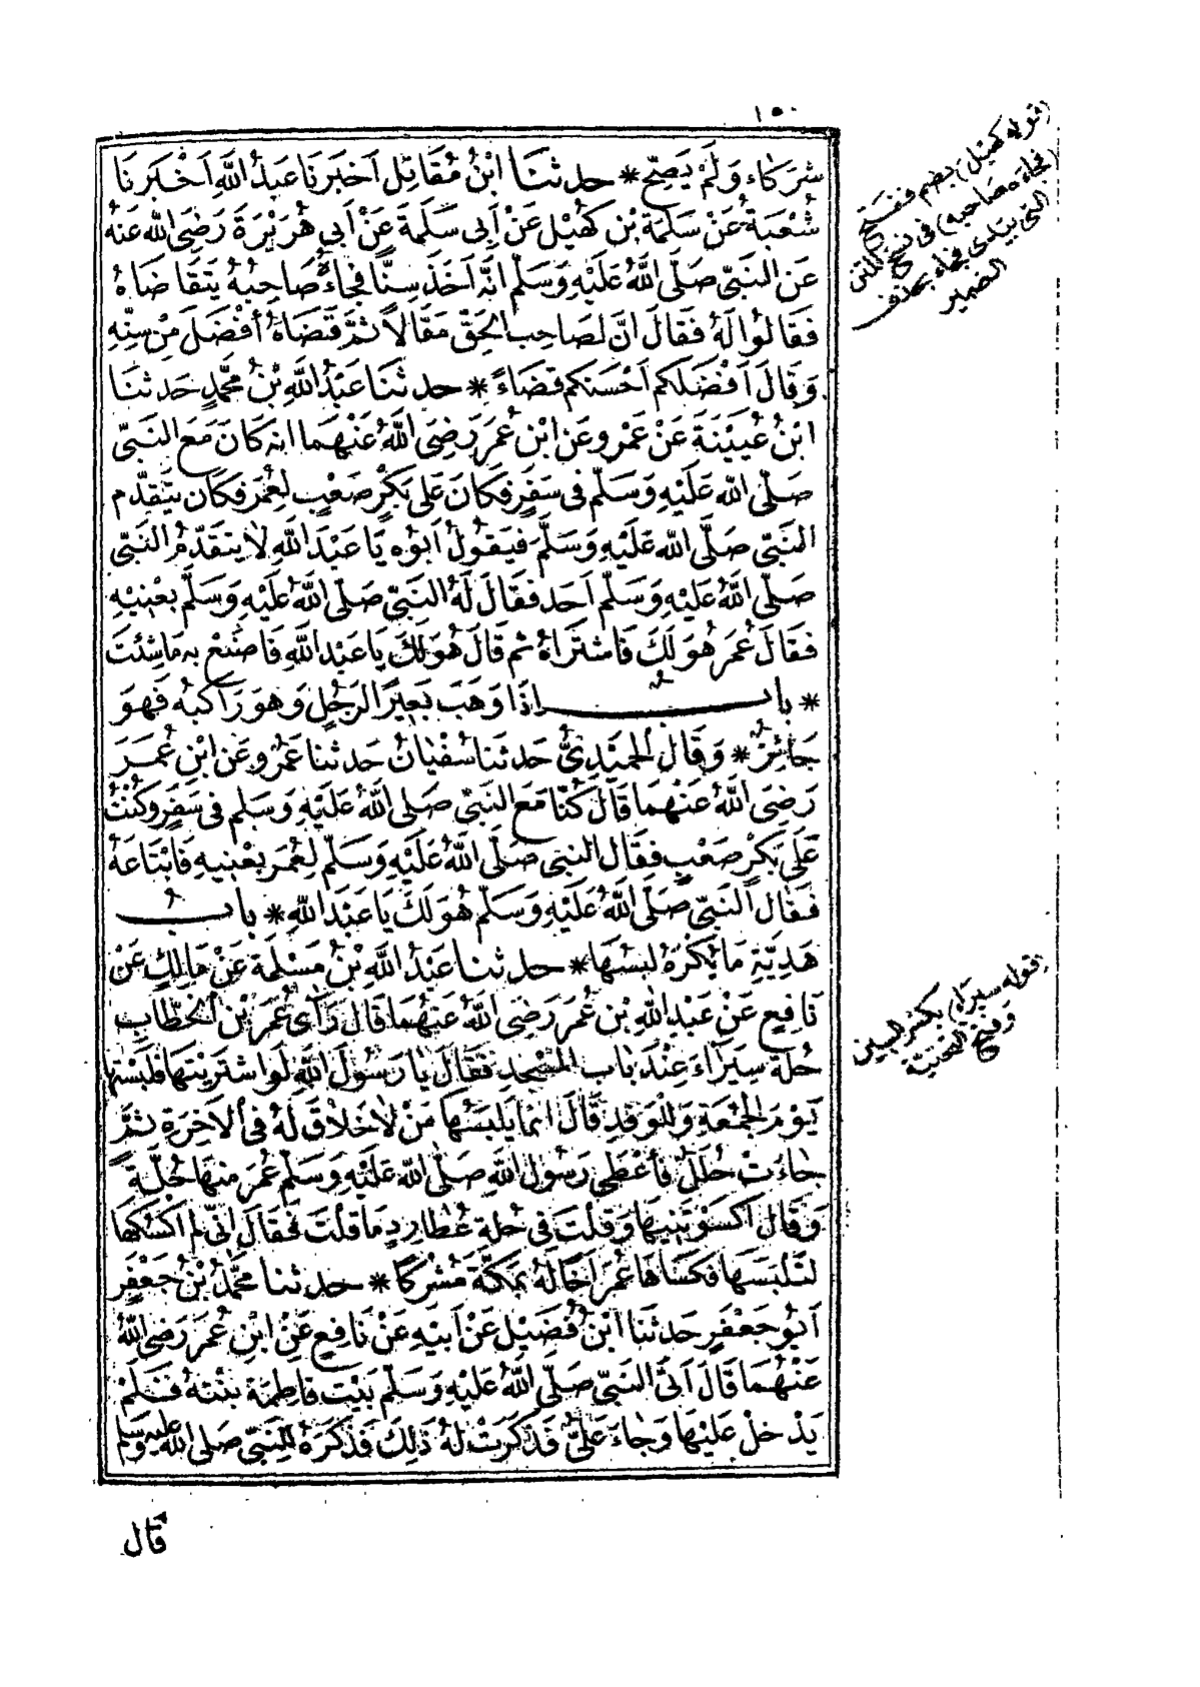 ١٥٠
شُرَكَاءُ وَلَمْ يَصِحَّ * حدثنَا ابْنُ مُقَاتِلٍ اَخْبَرَنَا عَبْدُ اللَّهِ اَخْبَرَنَا
شُعْبَةُ عَنْ سَلَمَةَ بْنِ كُهَيْلٍ عَنْ اَبِى سَلَمَةَ عَنْ اَبِى هُرَيْرَةَ رَضِىَ اللهُ عَنْهُ
عَنِ النَّبِىِّ صَلَّى اللَّهُ عَلَيْهِ وَسَلَّمَ اَنَّهُ اَخَذَ سِنًّا فَجَاءَهُ صَاحِبُهُ يَتَقَاضَاهُ
فَقَالُوا لَهُ فَقَالَ اِنَّ لِصَاحِبِ الحَقِّ مَقَالاً ثُمَّ قَضَاهُ أَفْضَلَ مِنْ سِنِّهِ
وَقَالَ اَفْضَلُكُم اَحْسَنُكُم قَضَاءً * حدثنَا عَبْدُ اللَّهِ بْنُ مُحَمَّدٍ حَدثنَا
ابْنُ عُيَيْنَةَ عَنْ عَمْرٍو عَنِ ابْنِ عُمَرَ رَضِىَ اللَّهُ عَنْهُمَا انه كَانَ مَعَ النَّبِىِّ
صَلَّى الله عَلَيْهِ وَسَلَّم فِى سَفَرٍ فَكَانَ عَلَى بَكْرٍ صَعْبٍ لِعُمَرَ فَكَان يَتَقَدَّم
النَّبِىَّ صَلَّى الله عَلَيْهِ وَسَلَّمَ فَيَقُولُ اَبُوه يَا عَبْدَ اللَّهِ لاَ يَتَقَدَّمُ النَّبِىَّ
صَلَّى اللَّهُ عَلَيْهِ وَسَلَّم اَحَد فَقَالَ لَهُ النَّبِىُّ صَلَّى اللَّهُ عَلَيْهِ وَسَلَّمَ بِعْنِيْهِ
فَقَالَ عُمَرُ هُوَ لَكَ فَاشْتَرَاهُ ثم قَالَ هُوَ لَكَ يَا عَبْدَ اللَّهِ فَاصْنَعْ بِهِ مَا شِئْتَ
* بابُ اِذَا وَهَبَ بَعِيرًا لِرَجُلٍ وَهوَ رَاكِبُه فَهوَ
جَائِزٌ * وَقَالَ الحُمَيْدِىُّ حَدثنَا سُفْيَانُ حَدثنا عَمْرٌو عَنِ ابْنِ عُمَرَ
رَضِىَ اللَّهُ عَنْهُمَا قَالَ كُنَّا مَعَ النَّبِىِّ صَلَّى اللَّهُ عَلَيْهِ وَسَلم فِى سَفَرٍ وَكُنْتُ
عَلَى بَكْرٍ صَعْبٍ فَقَالَ النَّبِىُّ صَلَّى اللَّهُ عَلَيْهِ وَسَلَّمَ لِعُمَرَ بِعْنِيهِ فَابْتَاعَهُ
فَقَالَ النَّبِىُّ صَلَّى اللَّهُ عَلَيْهِ وَسَلَّم هُوَ لَكَ يَا عَبْدَ اللَّهِ * بابُ
هَدِيَّةِ مَا يُكْرَهُ لُبْسُهَا * حدثنا عَبْدُ اللَّهِ بْنُ مَسْلَمَةَ عَنْ مَالِكٍ عَنْ
نَافِعٍ عَنْ عَبْدِ اللَّهِ بْنِ عُمَرَ رَضِىَ اللَّهُ عَنْهُمَا قَالَ رَأَى عُمَرُ بْن الْخَطَّابِ
حُلَّةً سِيَرَاءَ عِنْدَ بَابِ المَسْجِدِ فَقَالَ يَا رَسُولَ اللَّهِ لَوِ اشْتَرَيْتَهَا فَلَبِسْتَهَا
يَوْمَ الجُمُعَةِ وَلِلْوَفْدِ قَالَ انمَا يَلْبَسُهَا مَنْ لاَ خَلاَقَ لَهُ فِى الآخِرَةِ ثُمَّ
جَاءَتْ حُلَلٌ فَأَعْطَى رَسُولُ اللَّهِ صَلَّى الله عَلَيْهِ وَسَلَّمَ عُمَرَ مِنْهَا حُلَّةً
وَقَالَ اَكَسَوْتَنِيهَا وَقُلْتَ فِى حُلَّةِ عُطَارِدٍ مَا قُلْتَ فَقَالَ اِنِّى لم اَكْسُكَهَا
لِتَلْبَسَهَا فَكَسَاهَا عُمَرُ اَخًا لَهُ بِمَكَّةَ مُشْرِكًا * حدثنا مُحَمَّدُ بْنُ جَعْفَرٍ
اَبُو جَعْفَرٍ حَدثنَا ابْنُ فُضَيْلٍ عَنْ اَبِيْهِ عَنْ نَافِعٍ عَنِ ابْنِ عُمَرَ رَضِىَ اللَّهُ
عَنْهُمَا قَالَ اَتَى النَّبِىُّ صَلَّى اللَّهُ عَلَيْهِ وَسَلَّمَ بَيْتَ فَاطِمَةَ بِنْتِهِ فَلَمْ
يَدْخُلْ عَلَيْهَا وَجَاءَ عَلِىٌّ فَذَكَرَتْ لَهُ ذَلِكَ فَذَكَرَهُ لِلنَّبِىِّ صَلى الله عليه وسلم
قَالَ
(قوله كهيل) بضم ففتح
(فجاءه صاحبه) فى نسخ المتن
التى بيدى فجاء بحذف
الضمير
(قوله سيراء) بكسر السين
وفتح التحتيّة